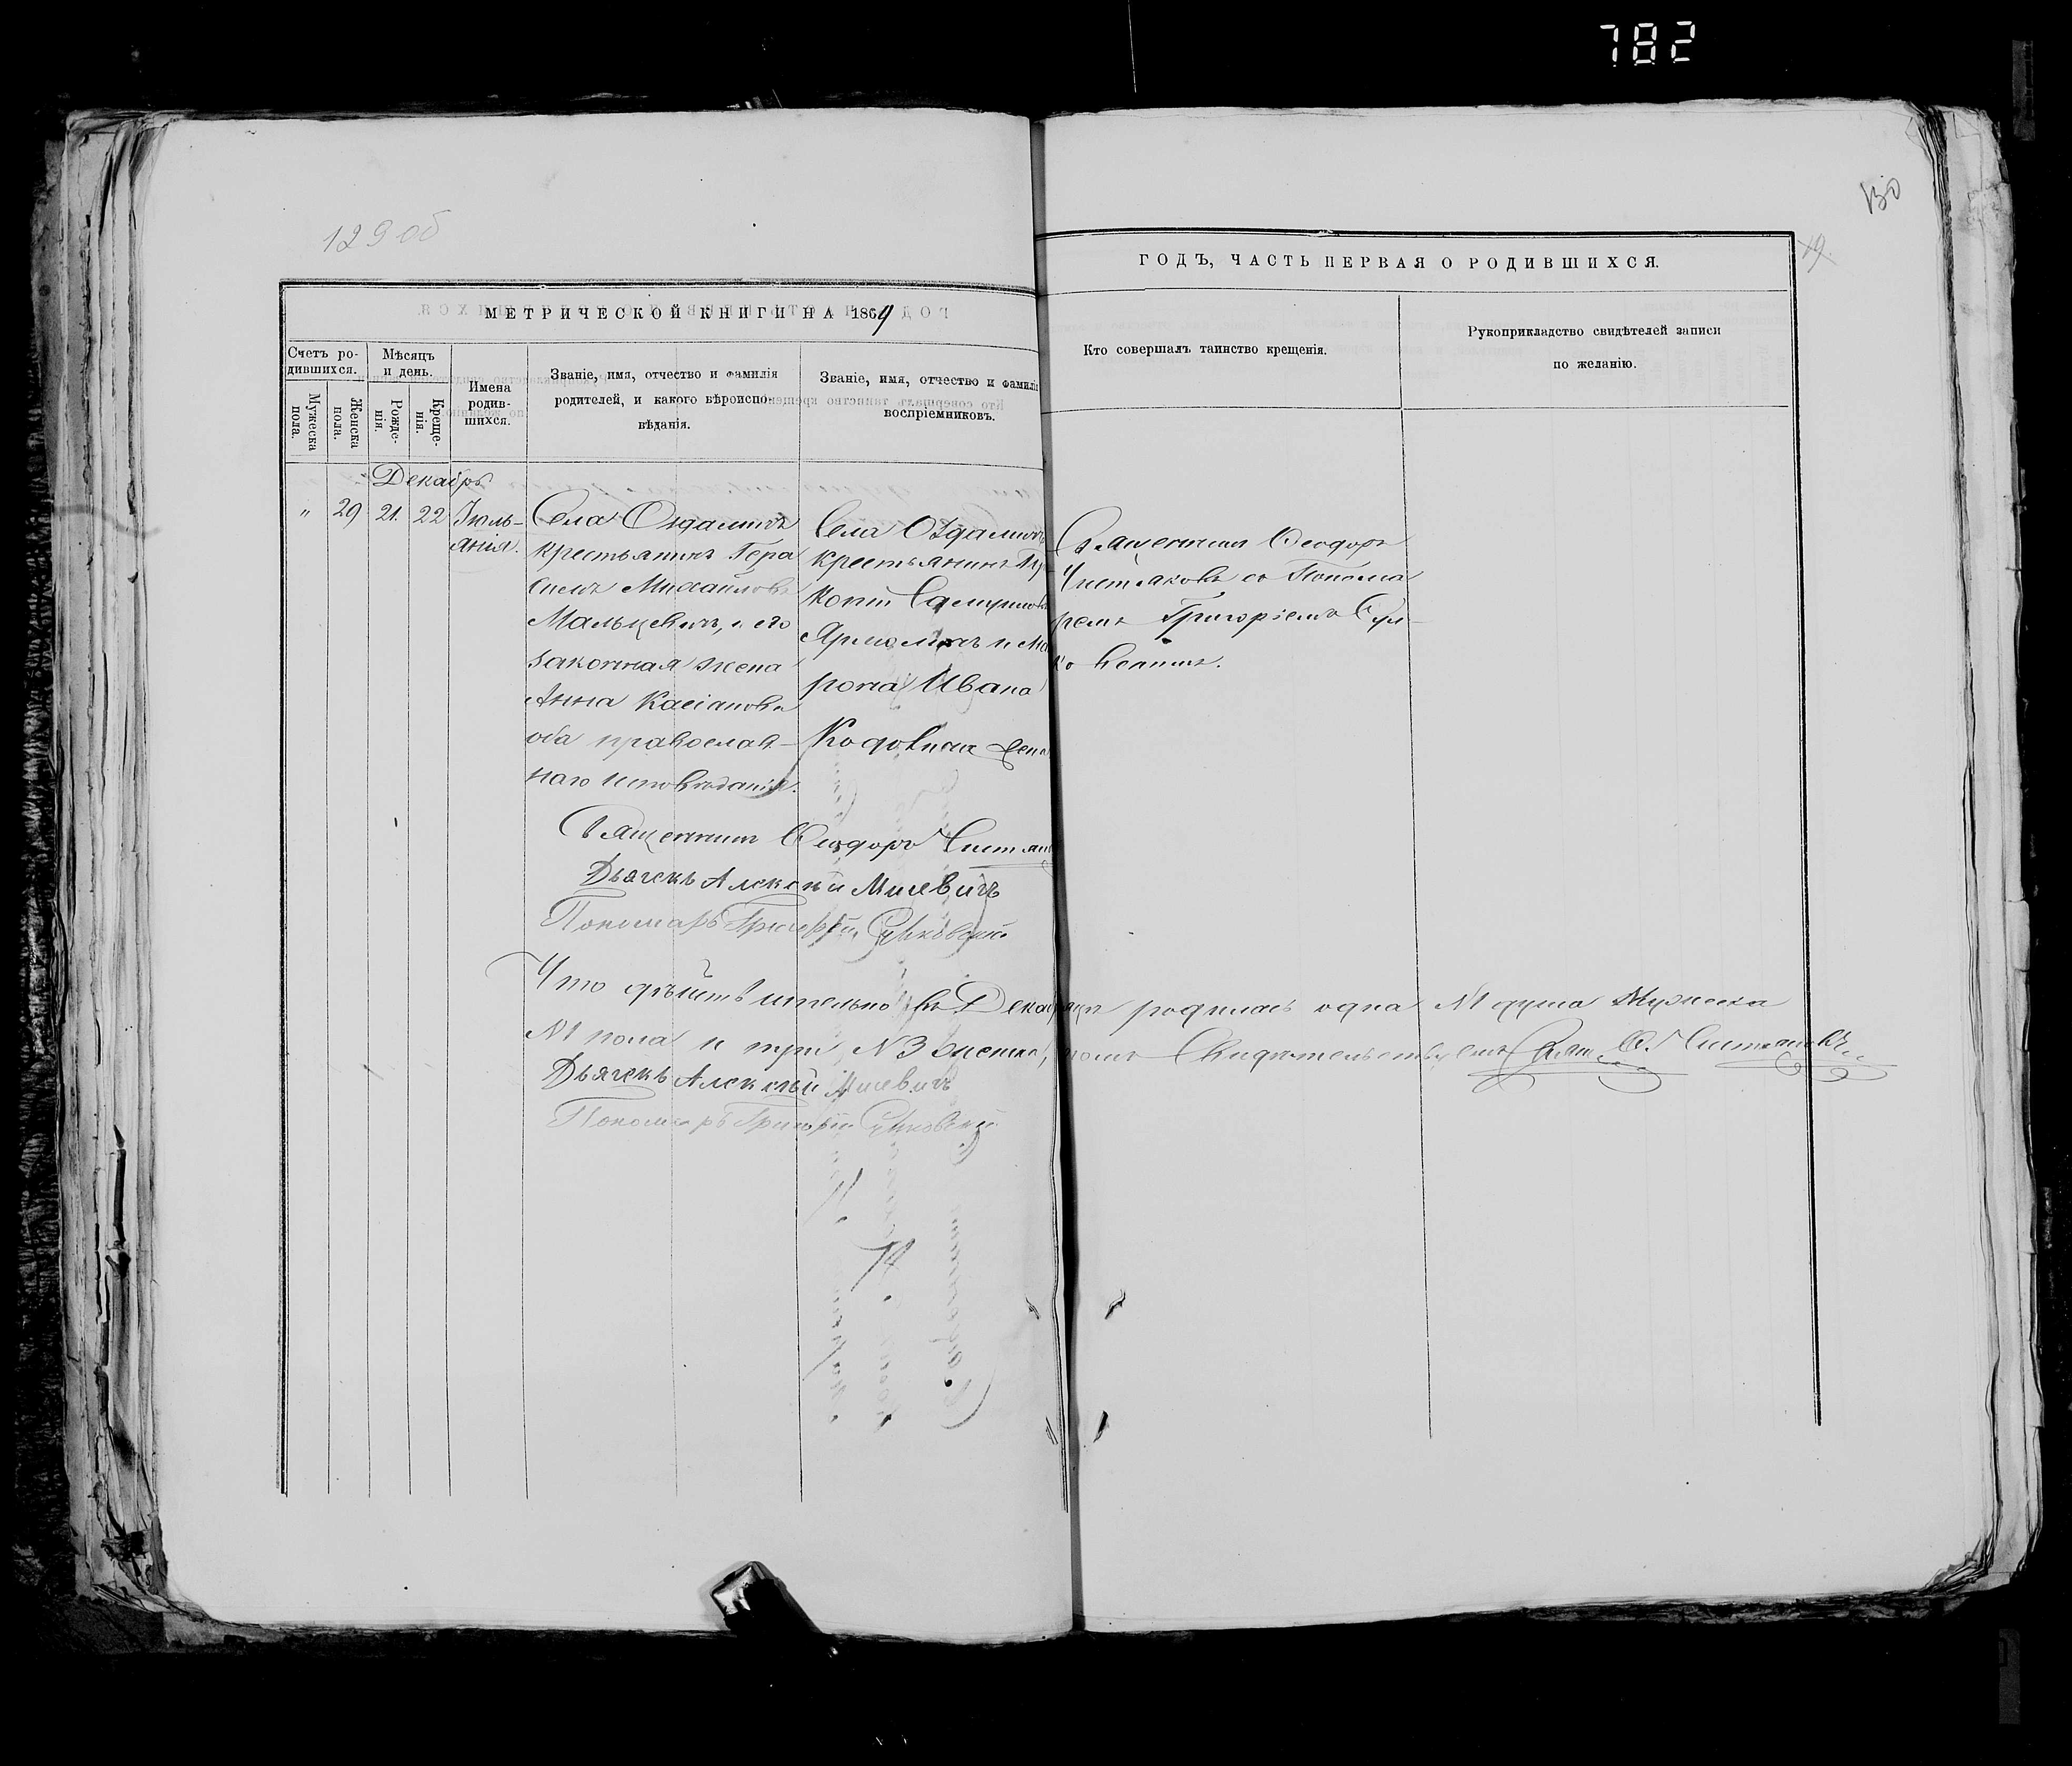 782
130
129 об
19.
МЕТРИЧЕСКОЙ КНИГИ НА 1869
ГОДЪ, ЧАСТЬ ПЕРВАЯ О РОДИВШИХСЯ.
Счетъ ро-
дившихся.
Мужеска
пола.
Женска
пола.
Мѣсяцъ
и день.
Рожде-
нія.
Креще-
нія.
Имена
родив-
шихся.
Званіе, имя, отчество и фамилія
родителей, и какого вѣроиспо-
вѣданія.
Званіе, имя, отчество и фамилі
воспріемниковъ.
Кто совершалъ таинство крещенія.
Рукоприкладство свидѣтелей записи
по желанію.
Декабрь
" 29 21. 22
Іюль-
янія.
Села Оздамичъ
крестьянинъ Гера
симъ Михайловъ
Мальцевичъ, и его
законная жена
Анна Касіанова
оба православ-
наго исповѣданія.
Села Оздамичъ
крестьянинъ
Ярмоличъ и Ма
рона Ивана
Священникъ Ѳеодоръ
Чистяковъ со Понома
ремъ Григоріемъ
Священникъ Ѳеодоръ Чистяк
Дьячекъ Алексѣй Мисевичъ
Пономарь Григорій
Что дѣйствительно въ Декабрѣ родилась одна №1 душа Мужеска
№1 пола и три №3 Женска, томъ Свидѣтельствуемъ Свящ. Ѳ. Чистяковъ
Дьячекъ Алексѣй Мисевичъ
Пономарь Григорій